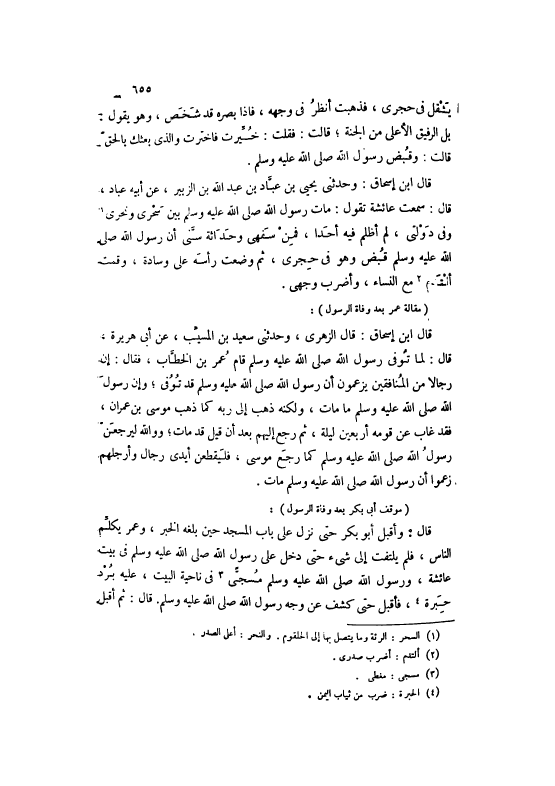 ٦٥٥
يَثْقل فى حجرى ، فذهبت أنظرُ فى وجهه ، فاذا بصره قد شَخَص ، وهو يقول :
بل الرفيق الأعلى من الجنة ؛ قالت : فقلت : خُـيِّرت فاخترت والذى بعثك بالحقّ
قالت : وقُبض رسول اللّه صلى اللّه عليه وسلم .
قال ابن إسحاق : وحدثنى يحيى بن عبَّاد بن عبد اللّه بن الزبير ، عن أبيه عباد ،
قال : سمعت عائشة تقول : مات رسول اللّه صلى اللّه عليه وسلم بين سَحْرى ونحرى ١
وفى دَوْلتى ، لم أظلم فيه أحدا ، فمِنْ سَفهى وحَدَاثة سنَّى أن رسول اللّه صلى
اللّه عليه وسلم قُبض وهو فى حِجرى ، ثم وضعت رأسه على وسادة ، وقمت
ألْتَدم ٢ مع النساء ، وأضرب وجهى .
( مقالة عمر بعد وفاة الرسول ) :
قال ابن إسحاق : قال الزهرى ، وحدثنى سعيد بن المسيِّب ، عن أبى هريرة ،
قال : لما تُوفى رسول اللّه صلى اللّه عليه وسلم قام عُمر بن الخطَّاب ، فقال : إن
رجالا من المُنافقين يزعمون أن رسول اللّه صلى اللّه عليه وسلم قد تُوُفى ؛ وإن رسول
اللّه صلى اللّه عليه وسلم ما مات ، ولكنه ذهب إلى ربه كما ذهب موسى بن عمران ،
فقد غاب عن قومه أربعين ليلة ، ثم رجع إليهم بعد أن قيل قد مات ؛ وواللّه ليرجعنّ
رسولُ اللّه صلى اللّه عليه وسلم كما رجَع موسى ، فليَقطعن أيدى رجال وأرجلهم
زعموا أن رسول اللّه صلى اللّه عليه وسلم مات .
( موقف أبى بكر بعد وفاة الرسول ) :
قال : وأقبل أبو بكر حتى نزل على باب المسجد حين بلغه الخبر ، وعمر يكلِّم
الناس ، فلم يلتفت إلى شىء حتى دخل على رسول اللّه صلى اللّه عليه وسلم فى بيت
عائشة ، ورسول اللّه صلى اللّه عليه وسلم مُسجًّى ٣ فى ناحية البيت ، عليه بُرْد
حِبَرة ٤ ، فأقبل حتى كشف عن وجه رسول اللّه صلى اللّه عليه وسلم. قال : ثم أقبل
(١) السحر : الرئة وما يتصل بها إلى الحلقوم . والنحر : أعلى الصدر .
(٢) ألتدم : أضرب صدرى .
(٣) مسجى : مغطى .
(٤) الحبرة : ضرب من ثياب اليمن .